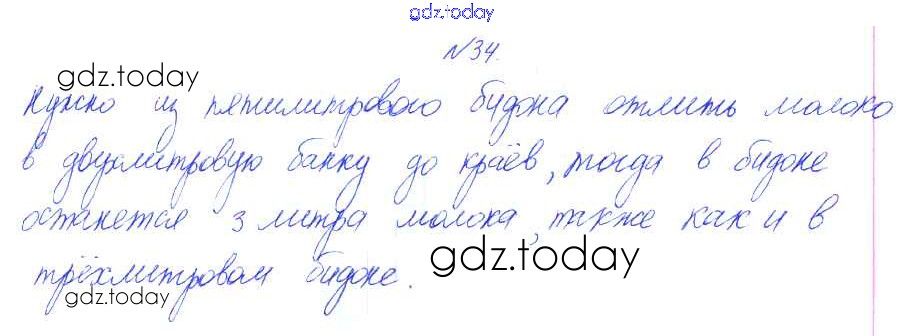 gdz.today
№34.
gdz.today
Нужно из пятилитрового бидона отлить молоко
gdz.today
в двухлитровую банку до краёв, тогда в бидоне
останется 3 литра молока, также как и в
gdz.today
трёхлитровом бидоне.
gdz.today